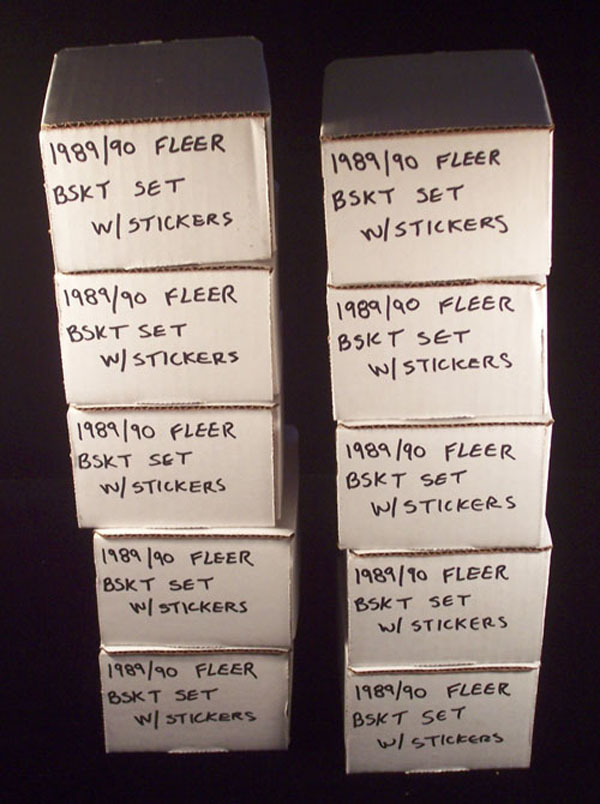 1989/90 FLEER
BSKT SET
W/ STICKERS
1989/90 FLEER
BSKT SET
W/ STICKERS
1989/90 FLEER
BSKT SET
W/ STICKERS
1989/90 FLEER
BSKT SET
W/ STICKERS
1989/90 FLEER
BSKT SET
W/ STICKERS
1989/90 FLEER
BSKT SET
W/ STICKERS
1989/90 FLEER
BSKT SET
W/ STICKERS
1989/90 FLEER
BSKT SET
W/ STICKERS
1989/90 FLEER
BSKT SET
W/ STICKERS
1989/90 FLEER
BSKT SET
W/ STICKERS